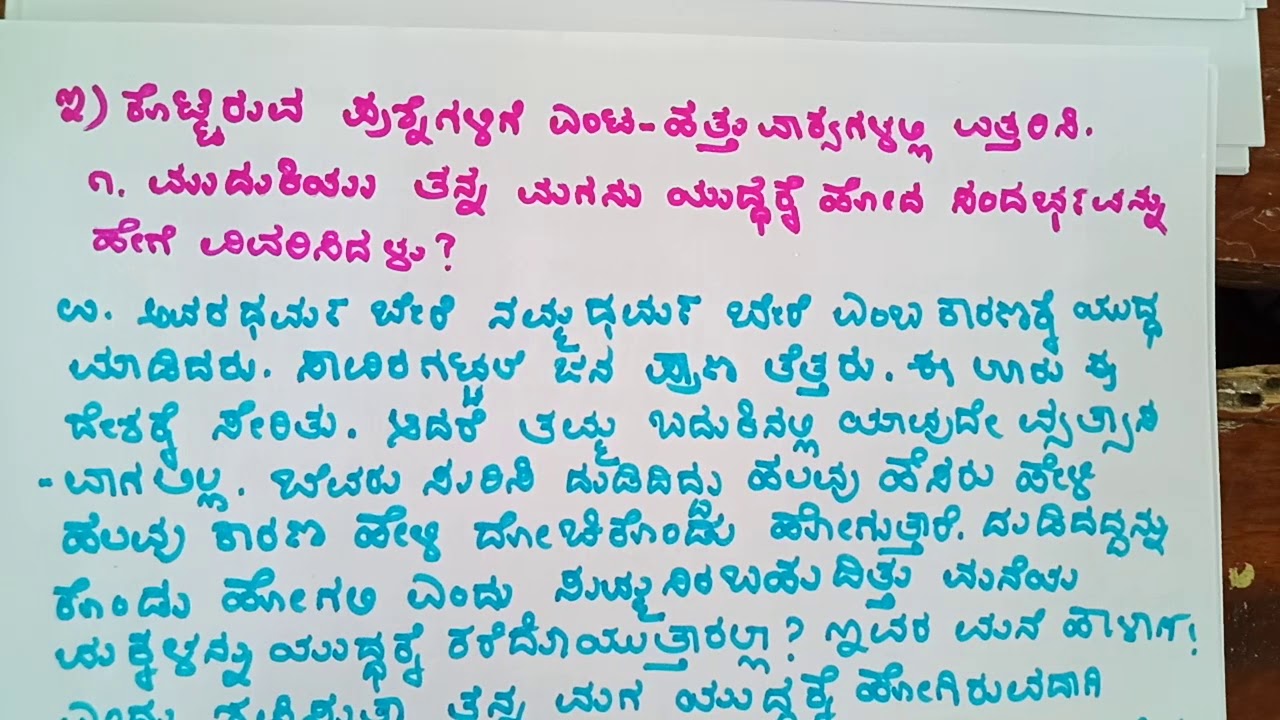 ಇ) ಕೊಟ್ಟಿರುವ ಪ್ರಶ್ನೆಗಳಿಗೆ ಎಂಟ-ಹತ್ತು ವಾಕ್ಯಗಳಲ್ಲಿ ಉತ್ತರಿಸಿ.
೧. ಮುದುಕಿಯು ತನ್ನ ಮಗನು ಯುದ್ಧಕ್ಕೆ ಹೋದ ಸಂದರ್ಭವನ್ನು
ಹೇಗೆ ವಿವರಿಸಿದಳು?
ಉ. ಅವರ ಧರ್ಮ ಬೇರೆ ನಮ್ಮ ಧರ್ಮ ಬೇರೆ ಎಂಬ ಕಾರಣಕ್ಕೆ ಯುದ್ಧ
ಮಾಡಿದರು. ಸಾವಿರಗಟ್ಟಲೆ ಜನ ಪ್ರಾಣ ತೆತ್ತರು. ಈ ಊರು ಈ
ದೇಶಕ್ಕೆ ಸೇರಿತು. ಆದರೆ ತಮ್ಮ ಬದುಕಿನಲ್ಲಿ ಯಾವುದೇ ವ್ಯತ್ಯಾಸ
-ವಾಗಲಿಲ್ಲ. ಬೆವರು ಸುರಿಸಿ ದುಡಿದಿದ್ದು ಹಲವು ಹೆಸರು ಹೇಳಿ
ಹಲವು ಕಾರಣ ಹೇಳಿ ದೋಚಿಕೊಂಡು ಹೋಗುತ್ತಾರೆ. ದುಡಿದದ್ದನ್ನು
ಕೊಂಡು ಹೋಗಲಿ ಎಂದು ಸುಮ್ಮನಿರಬಹುದಿತ್ತು ಮನೆಯ
ಮಕ್ಕಳನ್ನು ಯುದ್ಧಕ್ಕೆ ಕರೆದೊಯುತ್ತಾರಲ್ಲಾ? ಇವರ ಮನೆ ಹಾಳಾಗ!
ಎಂದು ತನ್ನ ಮಗ ಯುದ್ಧಕ್ಕೆ ಹೋಗಿರುವದಾಗಿ